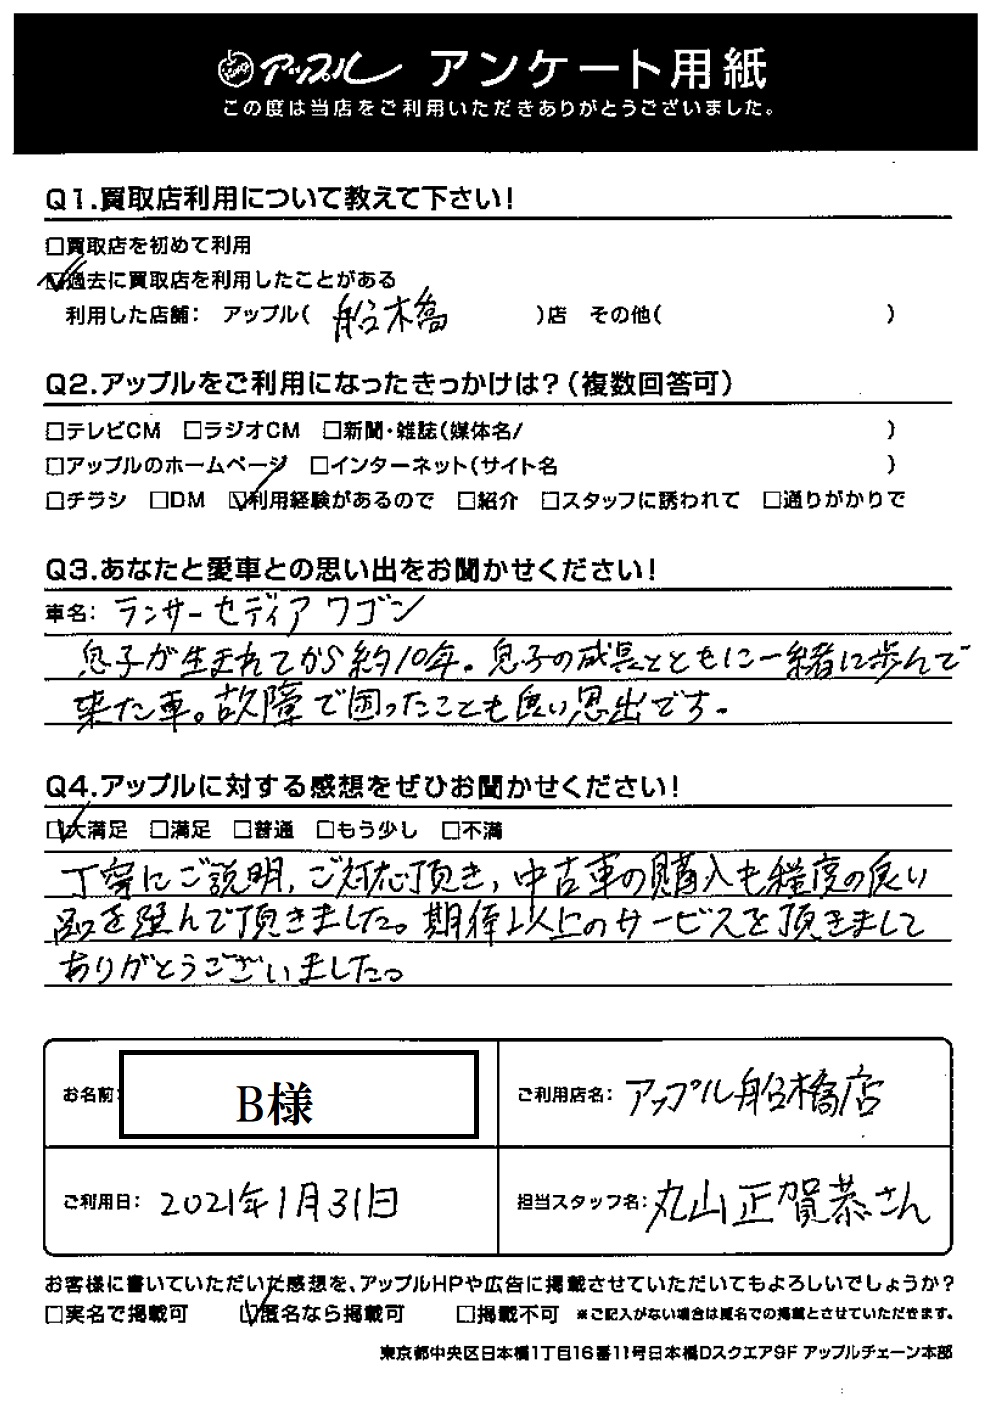 アップル アンケート用紙
この度は当店をご利用いただきありがとうございました。
Q1.買取店利用について教えて下さい!
□買取店を初めて利用
☑過去に買取店を利用したことがある
利用した店舗: アップル( 船橋 )店 その他( )
Q2.アップルをご利用になったきっかけは?(複数回答可)
□テレビCM □ラジオCM □新聞・雑誌(媒体名/ )
□アップルのホームページ □インターネット(サイト名 )
□チラシ □DM ☑利用経験があるので □紹介 □スタッフに誘われて □通りがかりで
Q3.あなたと愛車との思い出をお聞かせください!
車名: ランサーセディアワゴン
息子が生まれてから約10年。息子の成長とともに一緒に歩んで
来た車。故障で困ったことも良い思出です。
Q4.アップルに対する感想をぜひお聞かせください!
☑大満足 □満足 □普通 □もう少し □不満
丁寧にご説明,ご対応頂き,中古車の購入も程度の良い
品を選んで頂きました。期待以上のサービスを頂きまして
ありがとうございました。
お名前: B様 ご利用店名: アップル船橋店
ご利用日: 2021年1月31日 担当スタッフ名: 丸山正賀恭さん
お客様に書いていただいた感想を、アップルHPや広告に掲載させていただいてもよろしいでしょうか?
□実名で掲載可 ☑匿名なら掲載可 □掲載不可 ※ご記入がない場合は匿名での掲載とさせていただきます。
東京都中央区日本橋1丁目16番11号日本橋Dスクエア9F アップルチェーン本部